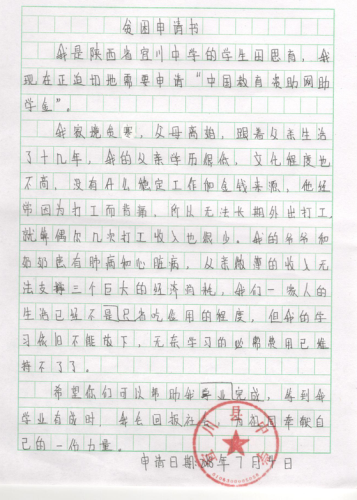 贫困申请书
我是陕西省宜川中学的学生田思育,我
现在正迫切地需要申请“中国教育资助网助
学金”。
我家境贫寒,父母离婚,跟着父亲生活
了十几年,我的父亲学历很低,文化程度也
不高,没有什么稳定工作和金钱来源,他经
常因为打工而背着,所以无法长期外出打工,
就算偶尔几次打工收入也很少。我的爷爷和
奶奶患有肺病和心脏病,父亲微薄的收入无
法支撑三个巨大的经济消耗,我们一家人的
生活已经不是只省吃俭用的程度,但我的学
习依旧不能放下,无奈学习的必需费用已维
持不了了。
希望你们可以帮助我学业完成,等到我
学业有成时,我会回报社会,为祖国奉献自
己的一份力量。
申请日期 年7月 日
宜川县中学